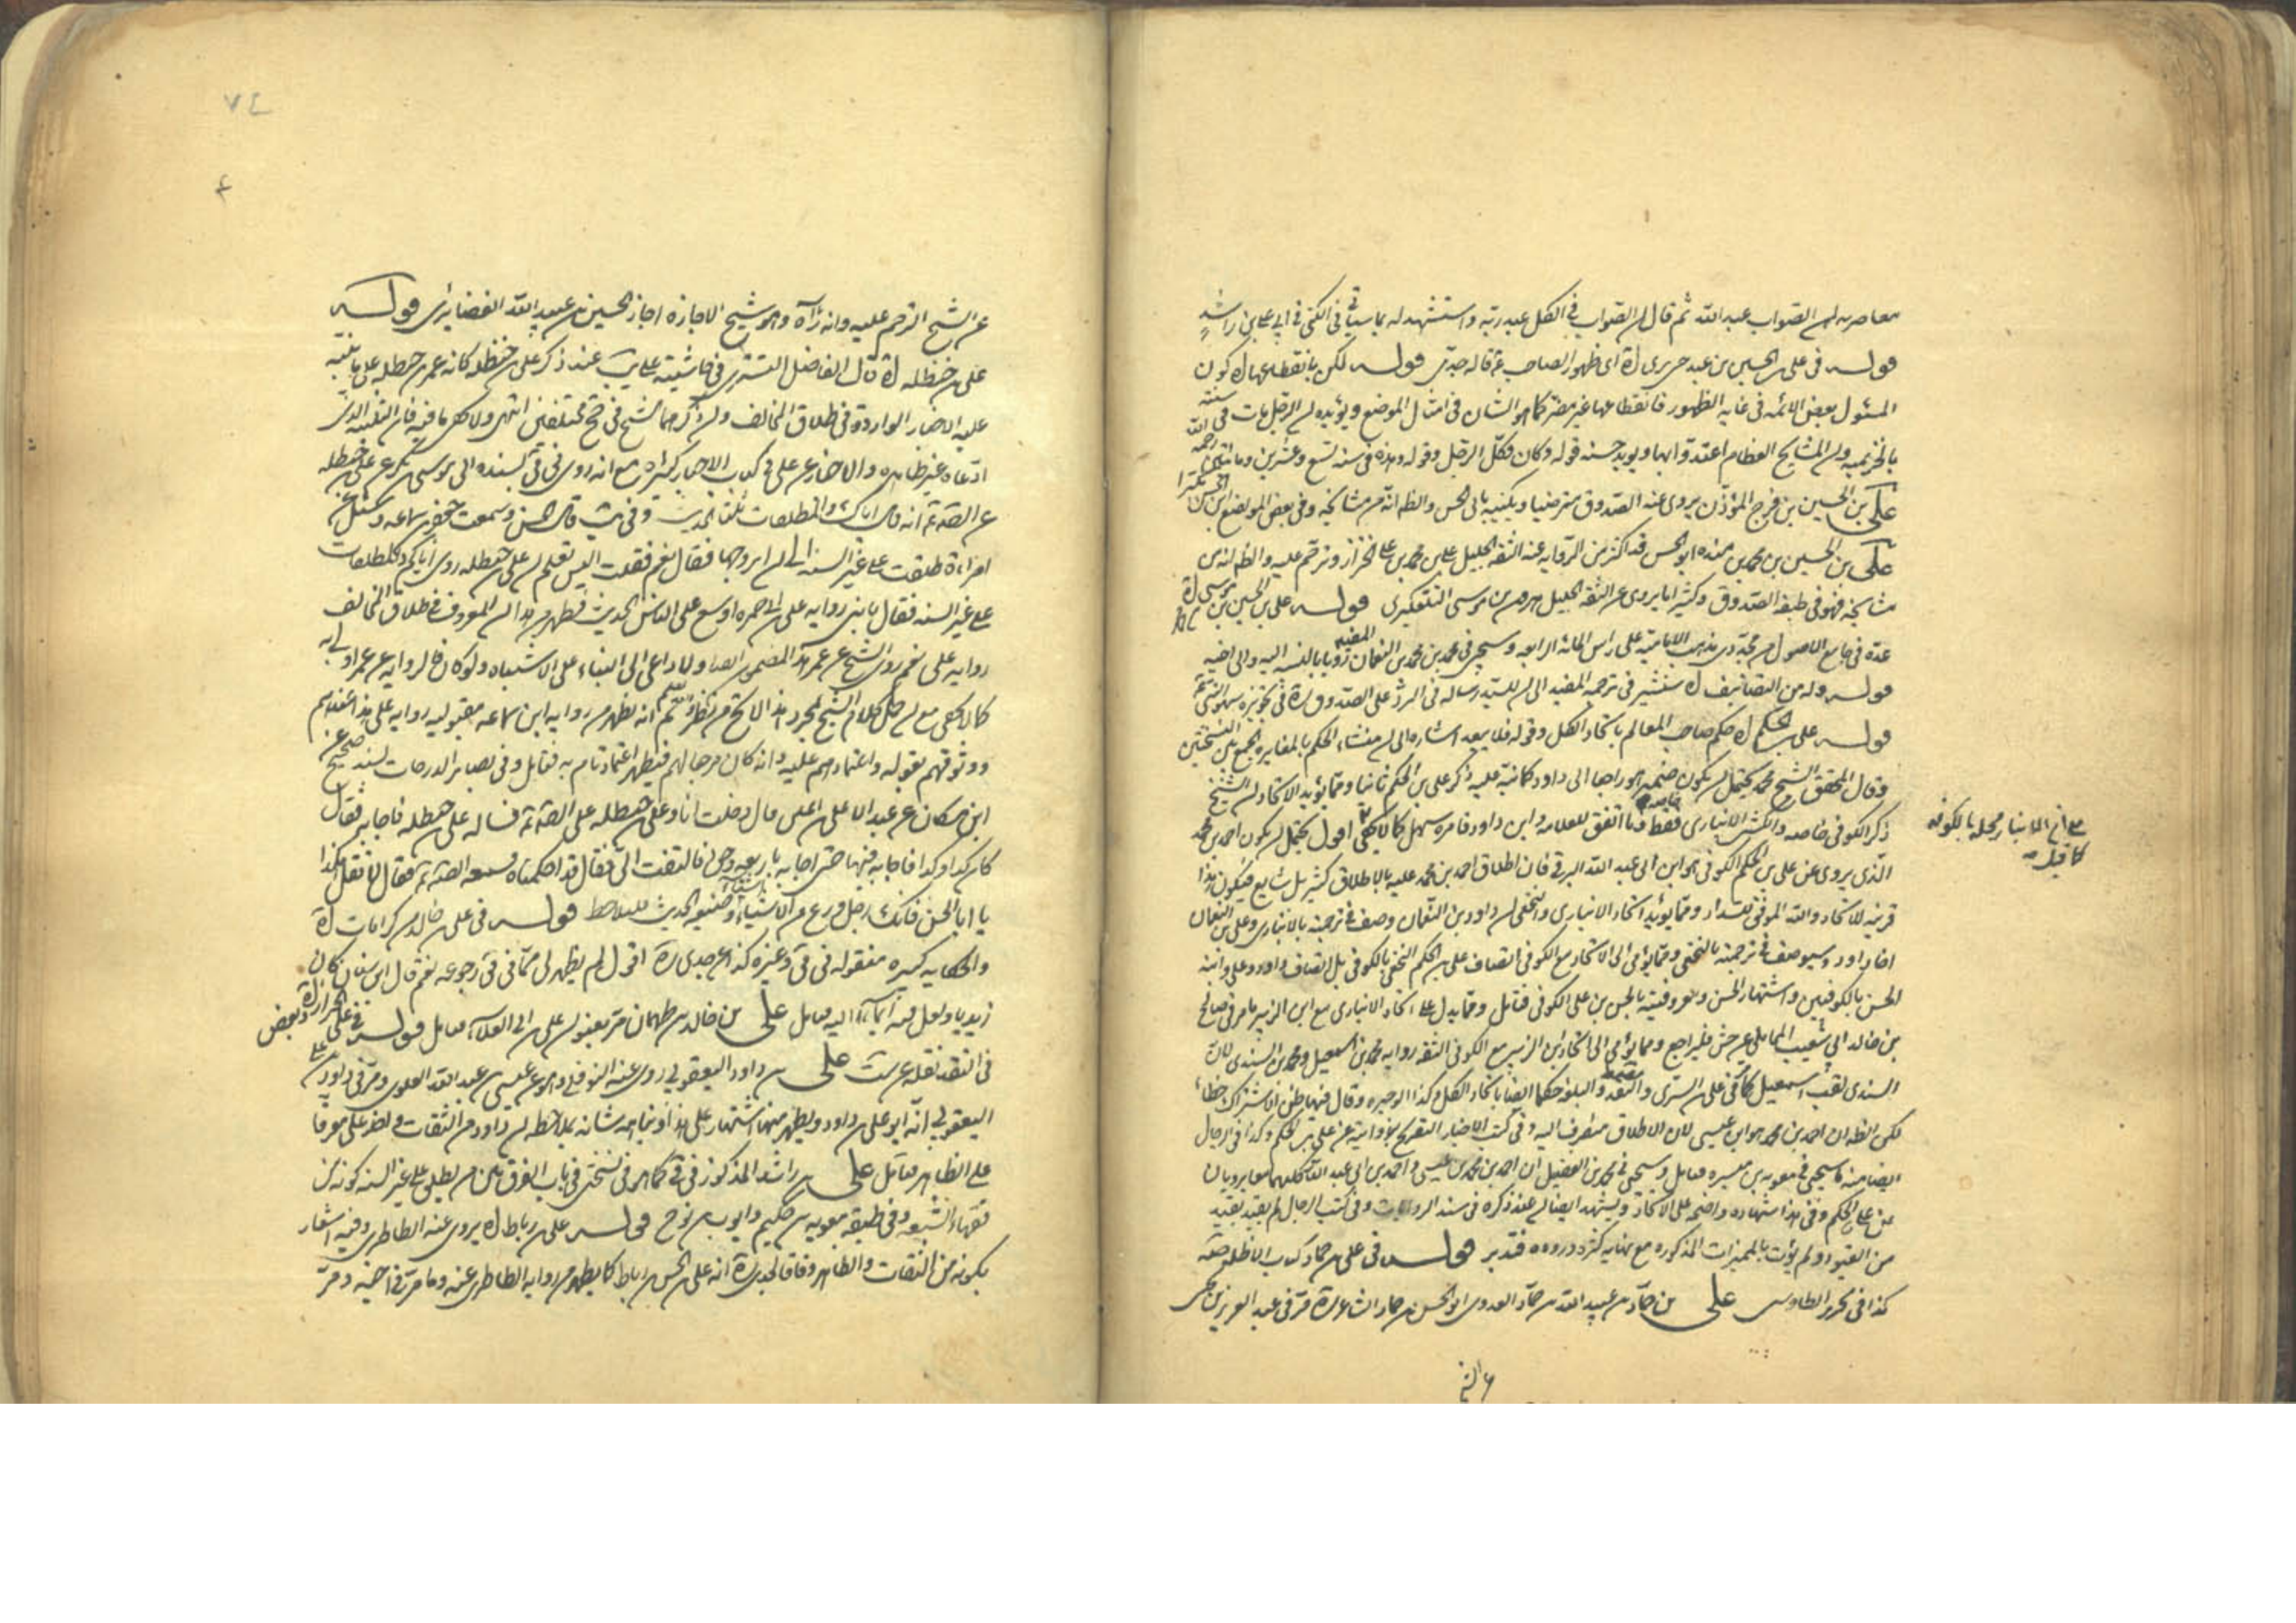 معاصريه ان الصواب عبد الله ثم قال ان الصواب في الكل عبد ربه واستشهد له بما سيأتي في الكنى في ابي علي بن راشد
قوله في علي بن الحسين بن عبد ربه اى ظهور الصاحب ع قاله جدي قوله لكن بانقطاعها اه كون
المسئول بعض الائمه في غاية الظهور فانقطاعها غير مضر كما هو الشان في امثال الموضع ويؤيده ان الرجل مات في سنة
بالخزيميه وان المشايخ العظام اعتدوا بها وقوله وكان وكل الرجل وقوله وهذه في سنه تسع وعشرين ومائتين
علي بن الحسين بن فرج المؤذن يروى عنه الصدوق مترضيا ويكنيه بابي الحسن والظ انه من مشايخه وفي بعض المواضع ابن الحسن مكبرا
علي بن الحسين بن محمد بن منده ابو الحسن قد اكثر من الرواية عنه الثقه الجليل علي بن محمد بن علي الخزاز وترحم عليه والظ انه من
مشايخه فهو في طبقة الصدوق وكثيرا ما يروى عن الثقه الجليل هرون بن موسى التلعكبرى قوله علي بن الحسين بن موسى اه
عده في جامع الاصول من مجددى مذهب الاماميه على راس المائة الرابعه وسيجئ في محمد بن محمد بن النعمان المفيد رؤيا بالنسبه اليه والى اخيه
قوله وله من التصانيف اه سنشير في ترجمه المفيد الى ان للسيد رساله في الرد على الصدوق ره في تجويزه سهو النبي
قوله علي بن الحكم اه حكم صاحب المعالم باتحاد الكل وقوله فلا يبعد اشاره الى ان منشاء الحكم بالمغايره الجمع بين النسختين
وقال المحقق الشيخ محمد يحتمل ان يكون ضمير هو راجعا الى داود كما نبه عليه ذكر علي بن الحكم ثانيا ومما يؤيد الاتحاد ان الشيخ
ذكر الكوفي خاصه والكشى الانبارى فقط وما اتفق للعلامه وابن داود فامره سهل كما لا يخفى اقول يحتمل ان يكون احمد بن محمد
الذى يروى عن علي بن الحكم الكوفي هو ابن ابي عبد الله البرقي فان اطلاق احمد بن محمد عليه بالاطلاق كثير بل شايع فيكون هذا
قرينه للاتحاد والله الموفق للسداد ومما يؤيد اتحاد الانبارى والنخعى ان داود بن النعمان وصف في ترجمته بالانبارى وعلي بن النعمان
اخا داود وسيوصف في ترجمته بالنخعى ومما يومى الى الاتحاد مع الكوفي اتصاف علي بن الحكم النخعى بالكوفي بل اتصاف داود وعلي وابنه
الحسن بالكوفيين واشتهار الحسن ومعروفيته بالحسن بن علي الكوفي فتامل ومما يدل على اتحاد الانبارى مع ابن الزبير ما مر في صالح
بن خالد ابي شعيب المحاملي عن جش فليراجع ومما يومى الى اتحاد ابن الزبير مع الكوفي الثقه رواية محمد بن اسمعيل ومحمد بن السندى لان
السندى لقب اسمعيل كما مر في علي بن السرى والنقد والبلغه حكما ايضا باتحاد الكل وكذا الوجيزه وقال فيها ظن الاشتراك خطأ
لكن الظ ان احمد بن محمد هو ابن عيسى لان الاطلاق ينصرف اليه وفي كتب الاخبار التصريح بروايته عن علي بن الحكم وكذا في الرجال
ايضا منه ما سيجئ في معويه بن ميسره فتامل وسيجئ في محمد بن الفضيل ان احمد بن محمد بن عيسى واحمد بن ابي عبد الله كليهما معا يرويان
عن علي بن الحكم وفي هذا شهاده واضحه على الاتحاد ويشهد ايضا له عند ذكره في سند الروايات وفي كتب الرجال لم يقيد بقيد
من القيود ولم يؤت بالمميزات المذكوره مع نهاية كثرة وروده فتدبر قوله في علي بن حماد كذاب الاظهر صحه
كذا في تحرير الطاوسى علي بن حماد بن عبيد الله بن حماد العدوى ابو الحسن بن حماد الشاعر ره مر في عبد العزيز بن يحيى
الانبار محله بالكوفه
كما قيل
عن الشيخ الترحم عليه وانه رآه وهو شيخ الاجازه اجاز الحسين بن عبيد الله الغضايرى قوله
علي بن حنظله اه قال الفاضل التسترى في حاشيته على يب عند ذكر علي بن حنظله كانه عمر بن حنظله على ما ينبه
عليه الاخبار الوارده في طلاق المخالف وان ذكرهما الشيخ في جخ مختلفين انتهى ولا يخفى ما فيه فان التنبيه الذى
ادعاه غير ظاهر والاخبار عن علي في كتب الاخبار كثيره مع انه روى في في بسنده الى موسى بن بكر عن علي بن حنظله
عن الصادق ع انه قال اياك والمطلقات ثلثا الحديث وفي يب قال الحسن وسمعت جعفر بن سماعه وسئل عن
امراة طلقت على غير السنه الى ان اتزوجها فقال نعم فقلت اليس تعلم ان علي بن حنظله روى اياكم والمطلقات
على غير السنه فقال يا بنى رواية علي بن ابي حمزه اوسع على الناس الحديث فظهر من هذا ان المعروف في طلاق المخالف
رواية علي نعم روى الشيخ عن عمر هذا المضمون ايضا ولا داعى الى البناء على الاشتباه ولو كان ففي الرواية عن عمر اولى به
كما لا يخفى مع ان حمل كلام الشيخ لمجرد هذا لا يخ من نظر ثم انه يظهر من رواية ابن سماعه مقبوليه رواية علي هذا عندهم
ووثوقهم بقوله واعتمادهم عليه وانه كان من رجالهم فيظهر اعتماد تام به فتامل وفي بصاير الدرجات بسند صحيح عن
ابن مسكان عن عبد الاعلى بن اعين قال دخلت انا وعلي بن حنظله على الصادق ع فساله علي بن حنظله فاجابه فقال
كان كذا وكذا فاجابه فيها حتى اجابه باربعه وجوه فالتفت الى فقال قد احكمناه فسمعه الصادق ع فقال لا تقل هكذا
يا ابا الحسن فانك رجل ورع من الاشياء اشياء ضيقه الحديث فليلاحظ قوله في علي بن خالد من كرامات اه
والحكايه كبيره منقوله في في وغيره كذا عن جدى ره اقول لم يظهر لي مما في في رجوعه نعم قال ابن سنان كان
زيديا ولعل فيه ايماء اليه فتامل علي بن خالد بن طهمان مر بعنوان علي بن ابي العلاء فتامل قوله في علي الخزاز اه وبعض
في النقد نقله عن ست علي بن داود اليعقوبي روى عنه النوفلي وهو عن عيسى بن عبد الله العلوى ومر في داود بن علي
اليعقوبي انه ابو علي بن داود ويظهر منها اشتهار علي هذا ونباهه شانه بملاحظه ان داود من الثقات ولعله علي معرفا
على الظاهر فتامل علي بن راشد المذكور في في كما هو في نسختى في باب الفرق بين من يطلق على غير السنه كونه من
فقهاء الشيعه وفي طبقه معويه بن حكيم وايوب بن نوح قوله علي بن رباط اه يروى عنه الطاطرى وفيه اشعار
بكونه من الثقات والظاهر وفاقا لجدى ره انه علي بن الحسن بن رباط كما يظهر من رواية الطاطرى عنه وما مر في اخيه ومر